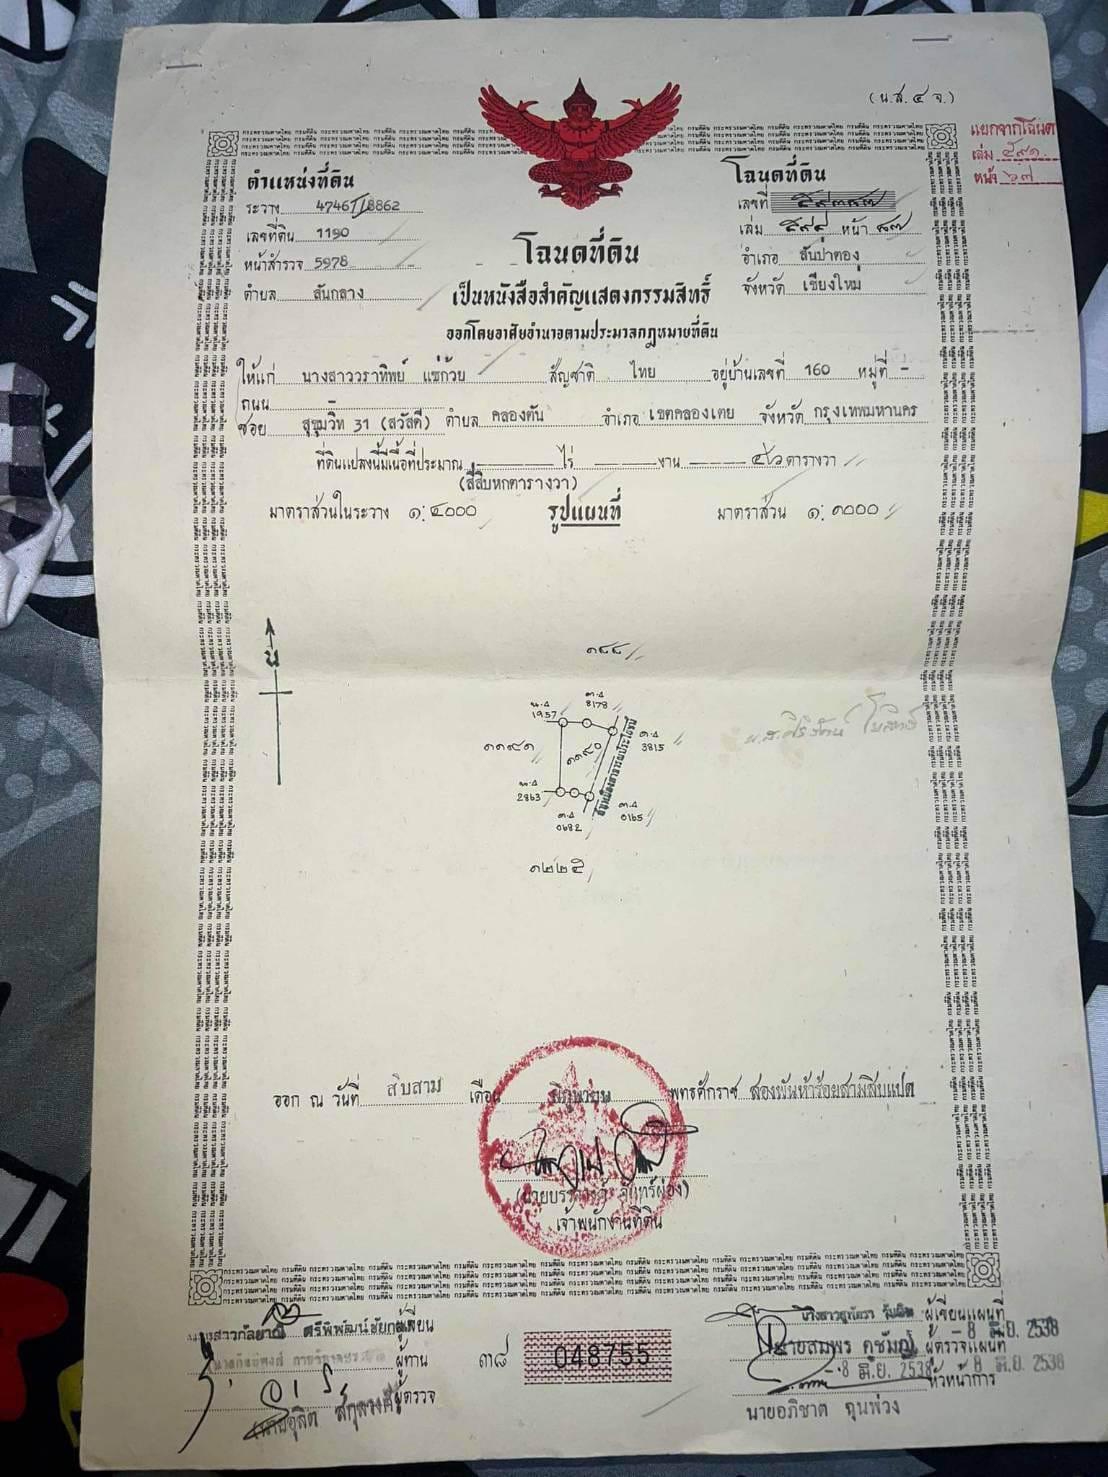 (น.ส. ๔ จ.)
แยกจากโฉนด
เล่ม ๕๙๑
หน้า ๖๗
ตำแหน่งที่ดิน
ระวาง 4746 II 8862
เลขที่ดิน 1190
หน้าสำรวจ 5978
ตำบล สันกลาง
โฉนดที่ดิน
เลขที่
เล่ม ๕๙๔ หน้า ๘๗
อำเภอ สันป่าตอง
จังหวัด เชียงใหม่
โฉนดที่ดิน
เป็นหนังสือสำคัญแสดงกรรมสิทธิ์
ออกโดยอาศัยอำนาจตามประมวลกฎหมายที่ดิน
ให้แก่ นางสาววราทิพย์ แซ่ก้วย สัญชาติ ไทย อยู่บ้านเลขที่ 160 หมู่ที่ -
ถนน
ซอย สุขุมวิท 31 (สวัสดี) ตำบล คลองตัน อำเภอ เขตคลองเตย จังหวัด กรุงเทพมหานคร
ที่ดินแปลงนี้มีเนื้อที่ประมาณ ไร่ งาน ๔๖ ตารางวา
(สี่สิบหกตารางวา)
มาตราส่วนในระวาง ๑:๔๐๐๐ รูปแผนที่ มาตราส่วน ๑:๑๐๐๐
น
๑๘๘
น.ส 1957
ค.ส 8178
ค.ส 3815
๑๑๙๑
๑๑๙๐
ลำเหมืองสาธารณประโยชน์
น.ส 2863
ค.ส 0682
ค.ส 0165
๑๒๒๕
น.ส.ศิริรัตน์
ออก ณ วันที่ สิบสาม เดือน มิถุนายน พุทธศักราช สองพันห้าร้อยสามสิบแปด
เจ้าพนักงานที่ดิน
ผู้เขียน
ผู้ทาน
ผู้ตรวจ
๓๘ 048755
ผู้เขียนแผนที่
- 8 มิ.ย. 2538
นายสมพร ผู้ตรวจแผนที่
- 8 มิ.ย. 2538
หัวหน้าการ
8 มิ.ย. 2538
นายอภิชาต ฤนพ่วง